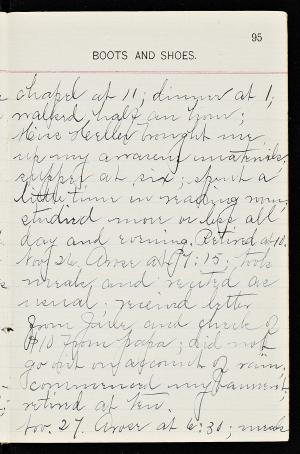 95
BOOTS AND SHOES.
chapel at 11; dinner at 1;
walked half an hour;
Miss Heller brought me
up my drawing materials.
supper at six; spent a
little time in reading room.
studied more or less all
day and evening. Retired at 10.
Nov. 26. Arose at 7:15; took
meals and recited as
usual; received letter
from Jake and check of
$10 from papa; did not
go out on account of rain.
commenced my garment;
retired at ten.
Nov. 27. Arose at 6:30; meals